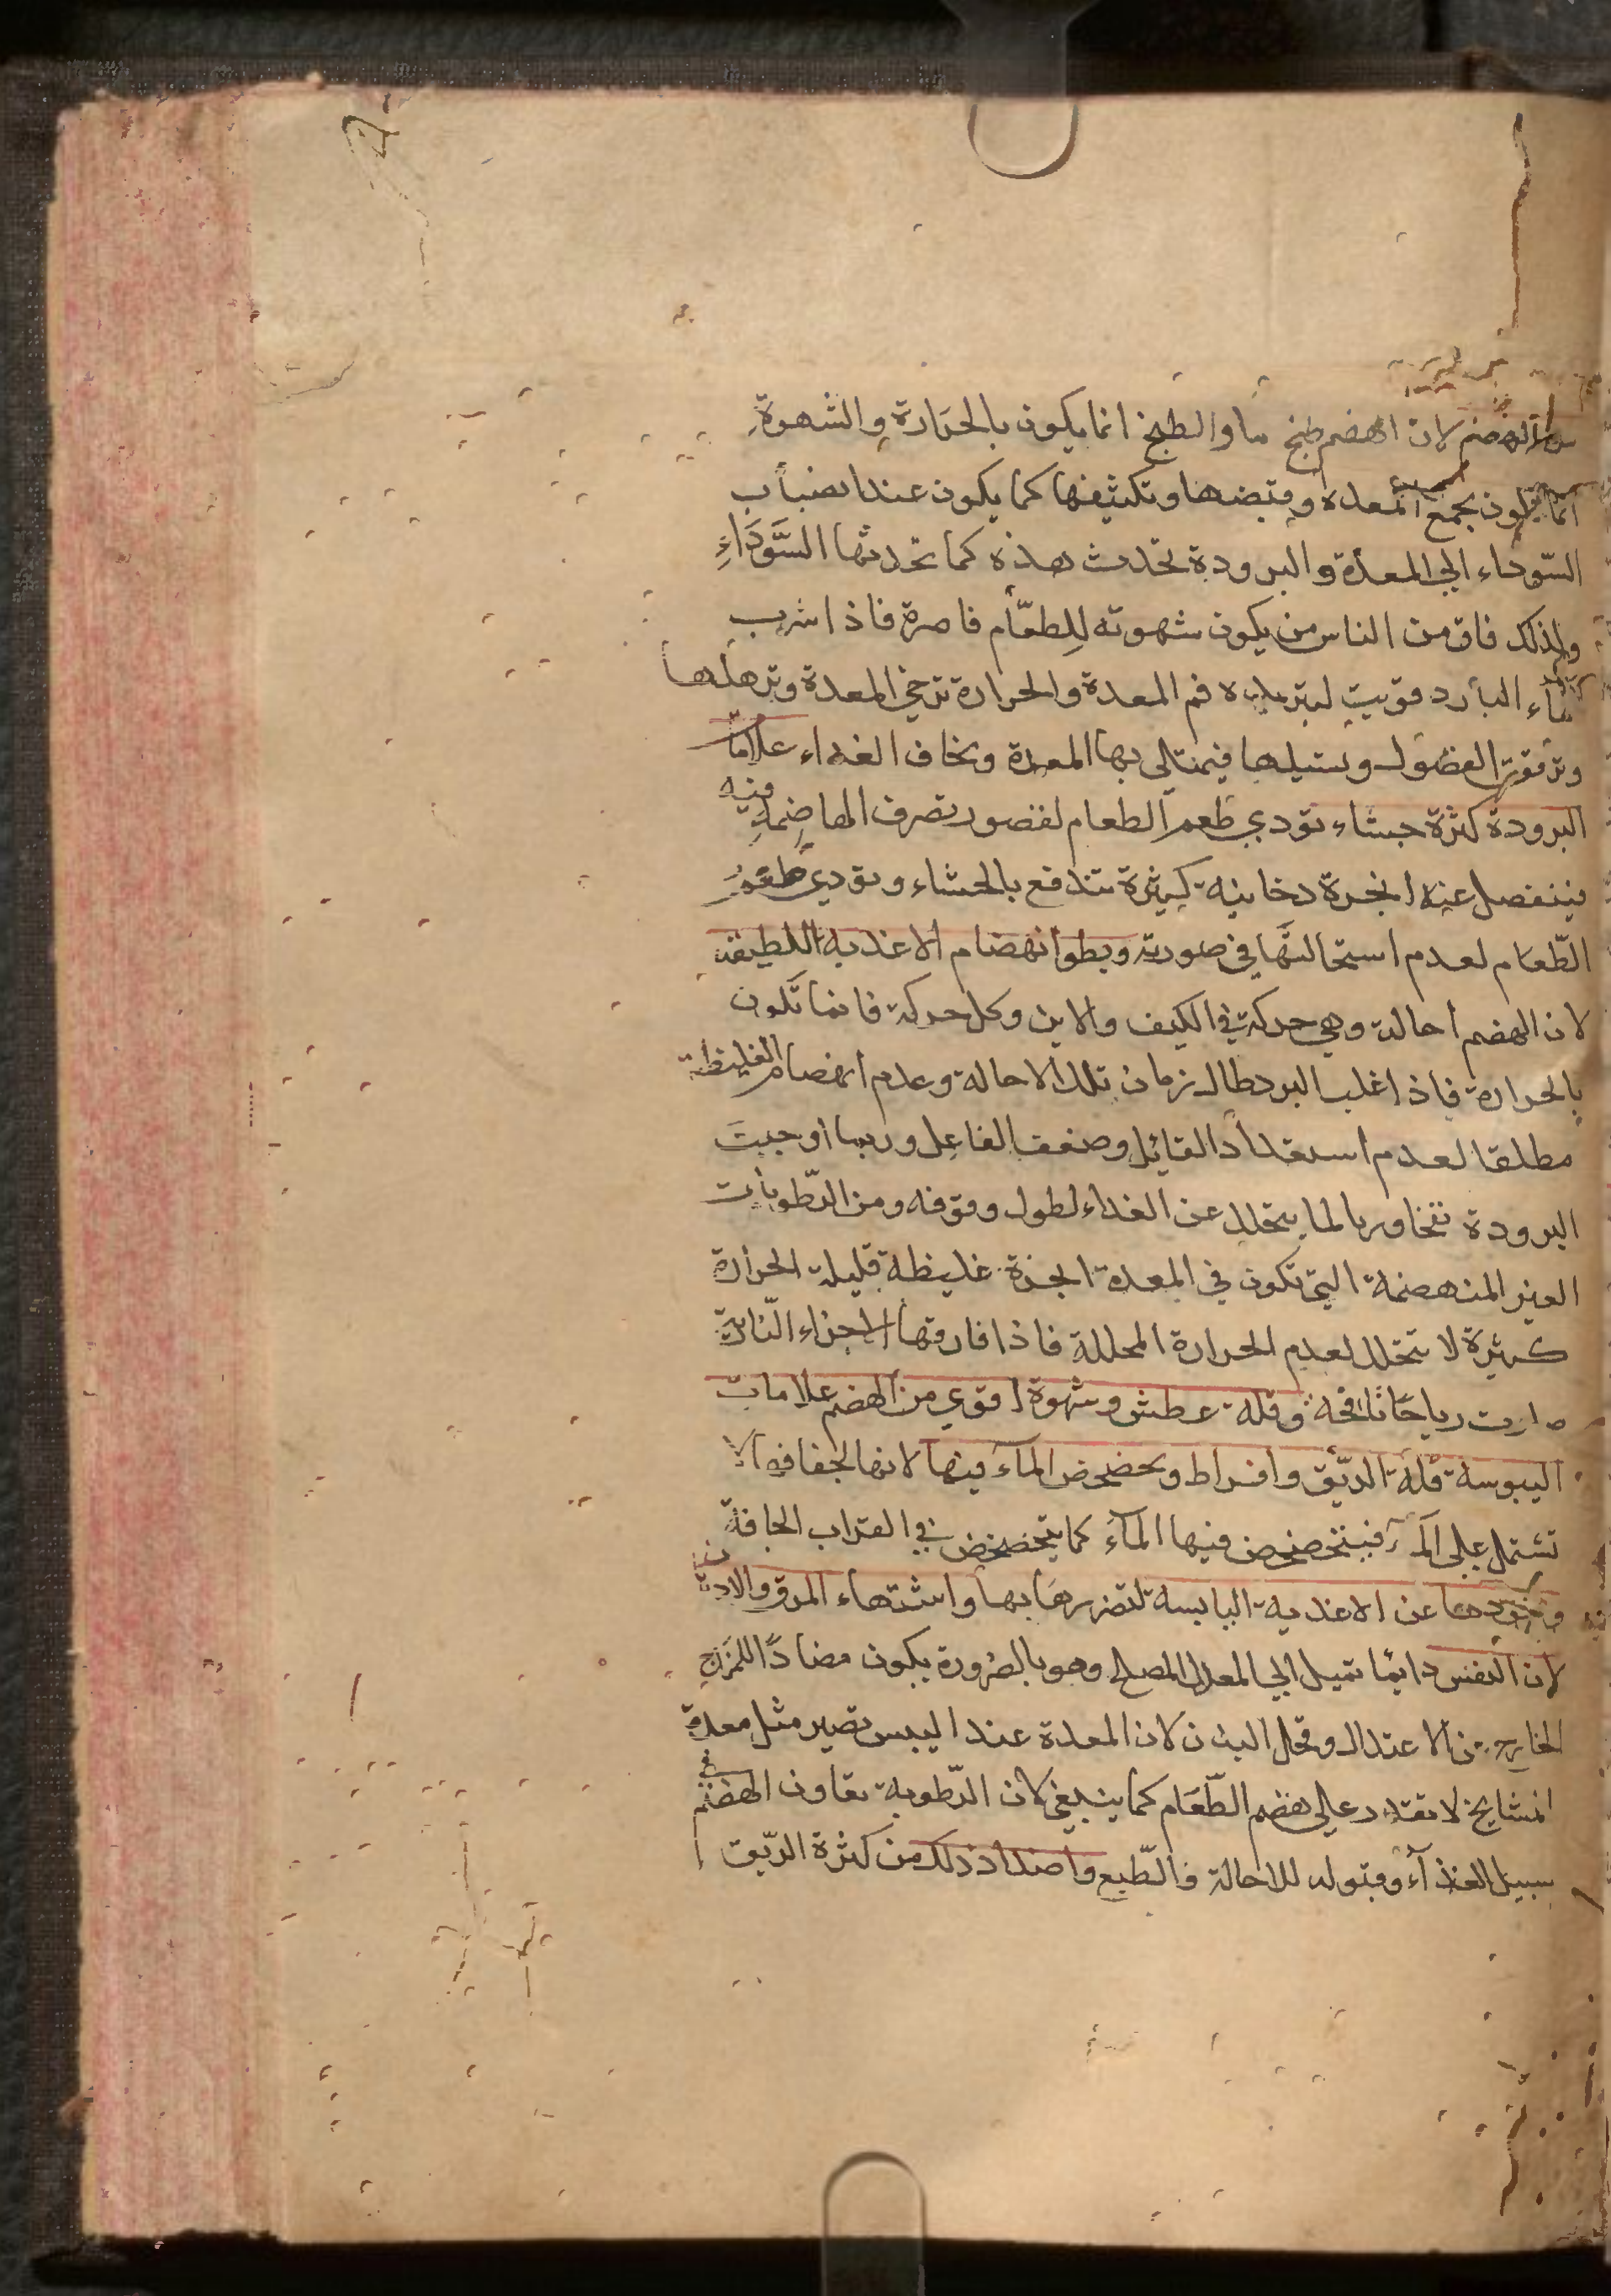 الهضم لان الهضم طبخ ما والطبخ انما يكون بالحرارة والشهوة
انما تكون بجمع المعدة وقبضها وتكثيفها كما يكون عند انصباب
السّوداء الي المعدة والبرودة تحدث هذه كما تحدثها السَّوَدَاءِ
ولذلك فان من الناس من يكون شهوته لِلطعّام قاصرة فاذا شرب
الماء البارد قويت لتبريده فم المعدة والحرارة ترخي المعدة وترهلها
وترقق الفضول وتسيلها فيمتلى بها المعدة وتخاف الغداء علامات
البرودة كثرة جشاء تؤدي طعم الطعام لقصور تصرف الهاضمة فيه
فينفصل عنه ابخرة دخانية كثيرة تندفع بالجشاء وتؤدي طعوم
الطّعام لعدم استحالتها في صورته وبطوا نهضام الاغذية اللطيفة
لان الهضم احالة وهي حركة في الكيف والاين وكل حركة فانما تكون
بالحرارة فاذا غلب البرد طال زمان تلك الاحالة وعدم انهضام الغليظة
مطلقا لعدم استعداد القابل وضعف الفاعل وربما اوجبت
البرودة تنفخا وربا لما يتحلل عن الغداء لطول وقوفه ومن الرّطوبات
الغير المنهضمة التي تكون في المعدة ابخرة غليظة قليلة الحرارة
كثيرة لا تتحلل لعدم الحرارة المحللة فاذا فارقتها الاجزاء النّارية
صارت رياحًا نافخة وقلة عطش وشهوة اقوي من الهضم علامات
اليبوسة قلة الريّق وافراط وتخضخض المآء فيها لانها لجفافها لا
تشتمل علي المآء فيتخضخض فيها المآء كما يتخضخض في القراب الجافة
عن الاغذية اليابسة لتضررها بها واشتهاء المرق والادهان
لان النفس دايمًا تميل الي المعدل المصلح وهو بالضرورة يكون مضادًا للمزاج
الخارج عن الاعتدال وقحل البدن لان المعدة عند اليبس تصير مثل معدة
المشايخ لا تقتدر علي هضم الطّعام كما ينبغي لان الرّطوبة تعاون الهضم في
سبيل الغذآء وقبوله للاحالة والطّبع واضداد ذلك من كثرة الريّق